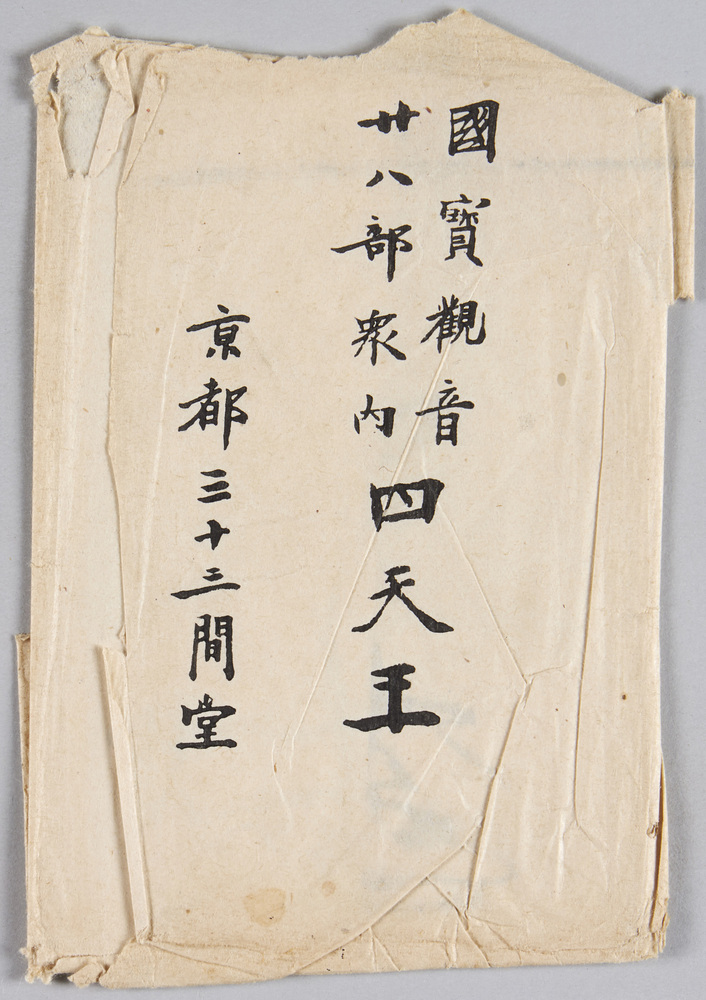 國寳觀音
廿八部衆内
四天王
京都三十三間堂